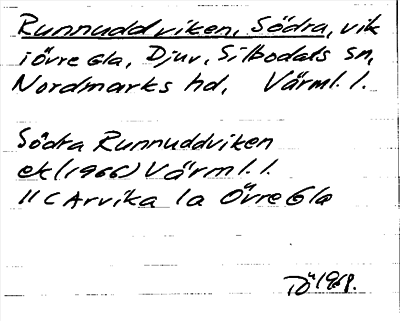 Runnuddviken, Södra, vik
i övre Gla, Djuv, Silbodals sn,
Nordmarks hd, Värml. l.
Södra Runnuddviken
ek (1966) Värml. l.
11 C Arvika 1a Övre Gla
Dö 1968.